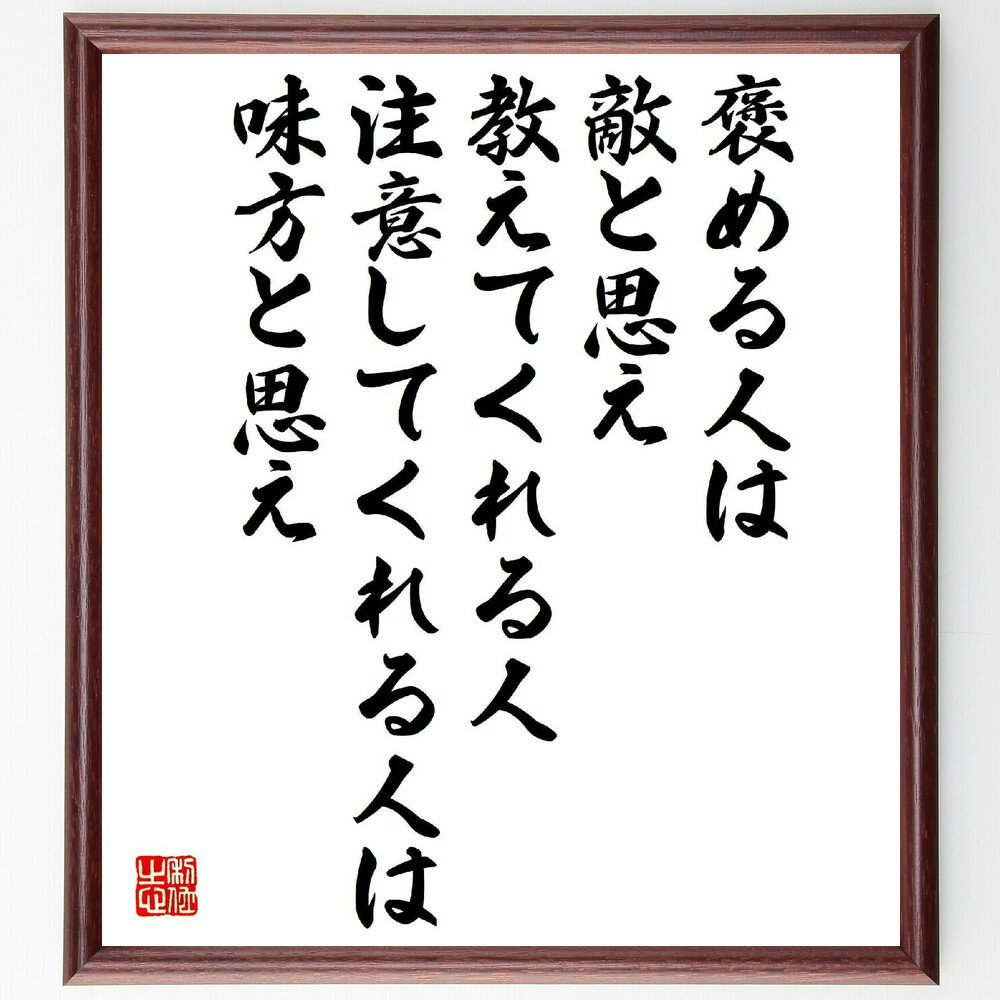 褒める人は
敵と思え
教えてくれる人
注意してくれる人は
味方と思え